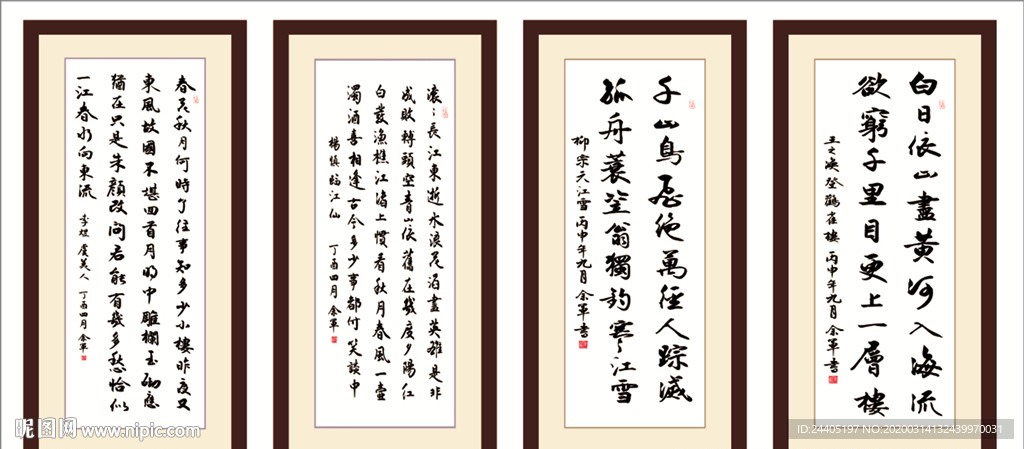 春花秋月何時了往事知多少小樓昨夜又
東風故國不堪回首月明中雕欄玉砌應
猶在只是朱顏改問君能有幾多愁恰似
一江春水向東流
李煜 虞美人 丁酉四月 余軍
滾〻長江東逝水浪花淘盡英雄是非
成敗轉頭空青山依舊在幾度夕陽紅
白髮漁樵江渚上慣看秋月春風一壺
濁酒喜相逢古今多少事都付笑談中
楊慎臨江仙 丁酉四月 余軍
千山鳥飛絕萬徑人踪滅
孤舟蓑笠翁獨釣寒江雪
柳宗元江雪 丙申年九月 余軍書
白日依山盡黃河入海流
欲窮千里目更上一層樓
王之渙登鸛雀樓 丙申年九月 余軍書
昵图网 www.nipic.com
ID:24405197 NO.20200314132439970031